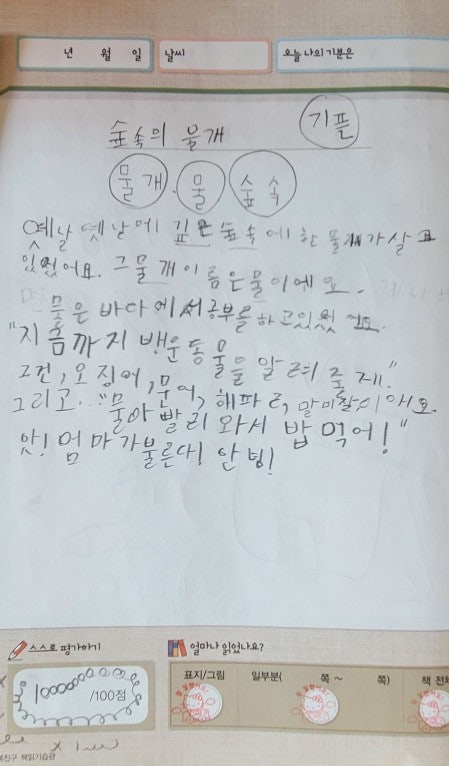 년 월 일 날씨 오늘 나의 기분은
숲속의 물개 기플
물개 물 숲속
옛날 옛날에 깊은 숲속에 한 물개가 살고
있었어요. 그물개이름은물이에요.
물은 바다에서공부를하고있었어요.
"지금까지 배운동물을알려줄게!"
그건, 오징어, 문어, 해파리, 말미잘이에요.
그리고.. "물아빨리 와서 밥 먹어!"
앗! 엄마가불른다! 안녕!
스스로 평가하기 얼마나 읽었나요?
표지/그림 일부분( 쪽 ~ 쪽) 책 전체
/100점
책읽기습관